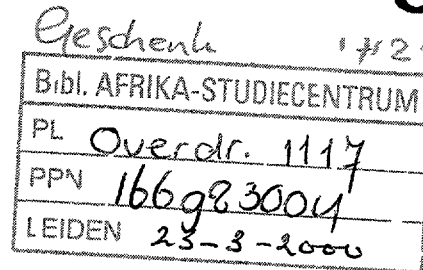 Geschenk
Bibl. AFRIKA-STUDIECENTRUM
PL Overdr. 1117
PPN 166983004
LEIDEN 23-3-2000